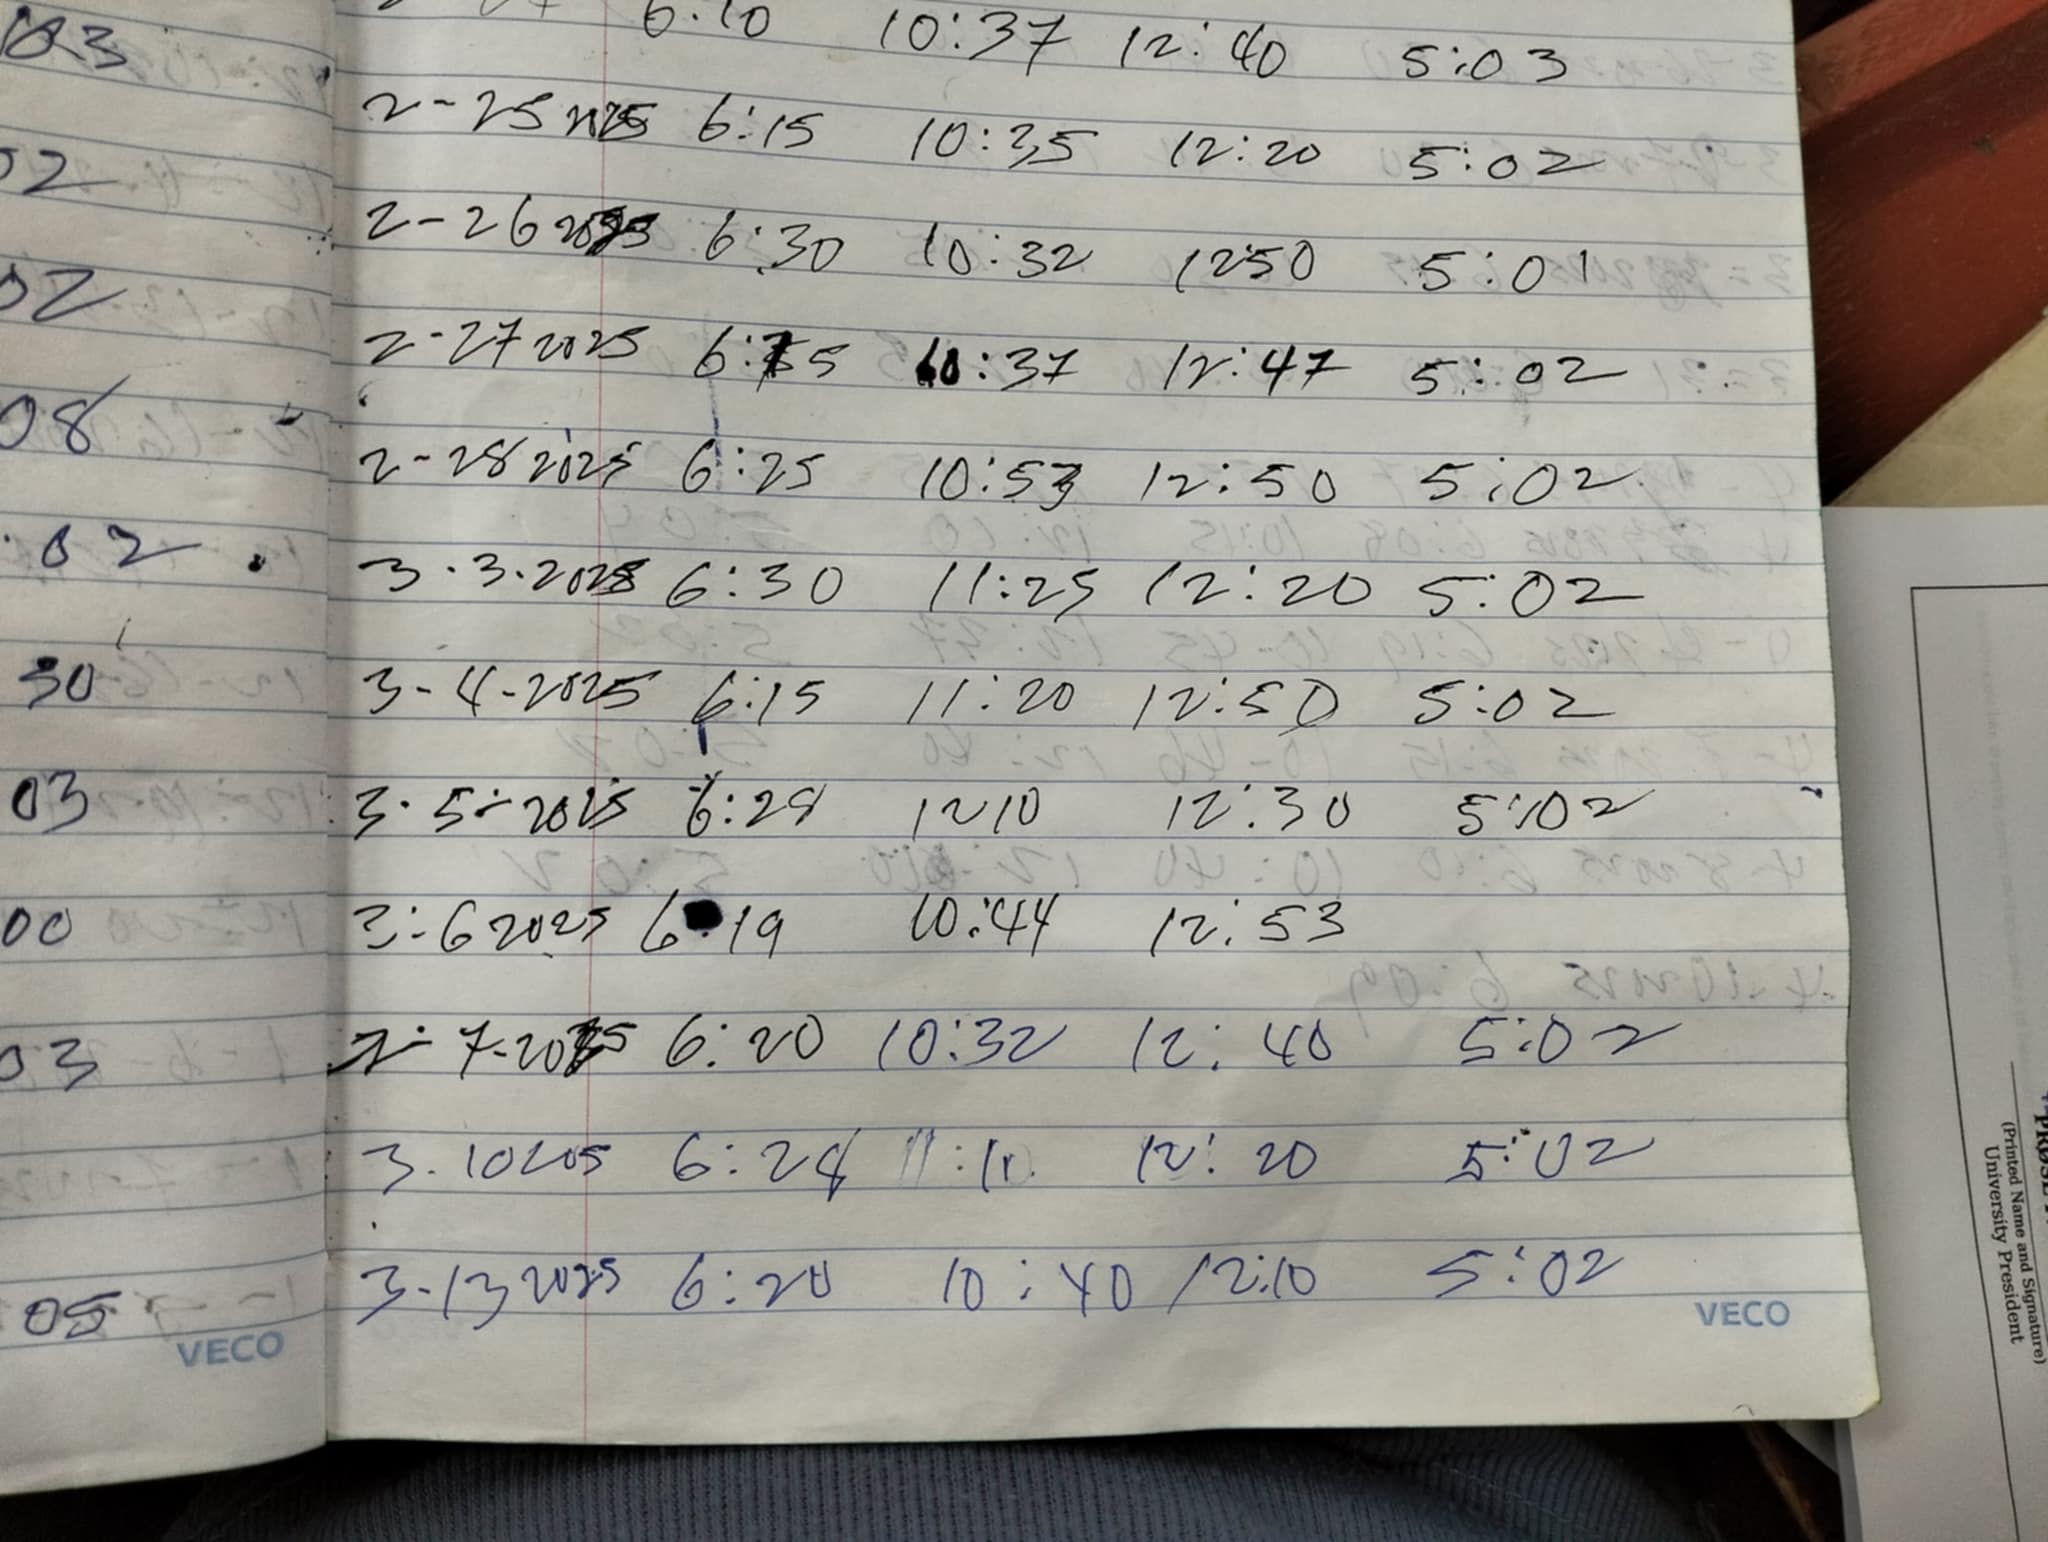 103
02
02
08
.02
30
03
00
03
05
VECO
6:10 10:37 12:40 5:03
2-25 2025 6:15 10:35 12:20 5:02
2-26 6:30 10:32 1250 5:01
2-27 2025 10:37 12:47 5:02
2-28 2025 6:25 10:53 12:50 5:02
3.3.2025 6:30 11:25 12:20 5:02
3-4-2025 6:15 11:20 12:50 5:02
3.5-2025 1210 12:30 5:02
3-6 2025 6:19 10:44 12:53
7-2025 6:20 10:32 12:40 5:02
3.10 12:20 5:02
3-13 2025 6:20 10:40 12:10 5:02
VECO
(Printed Name and Signature)
University President